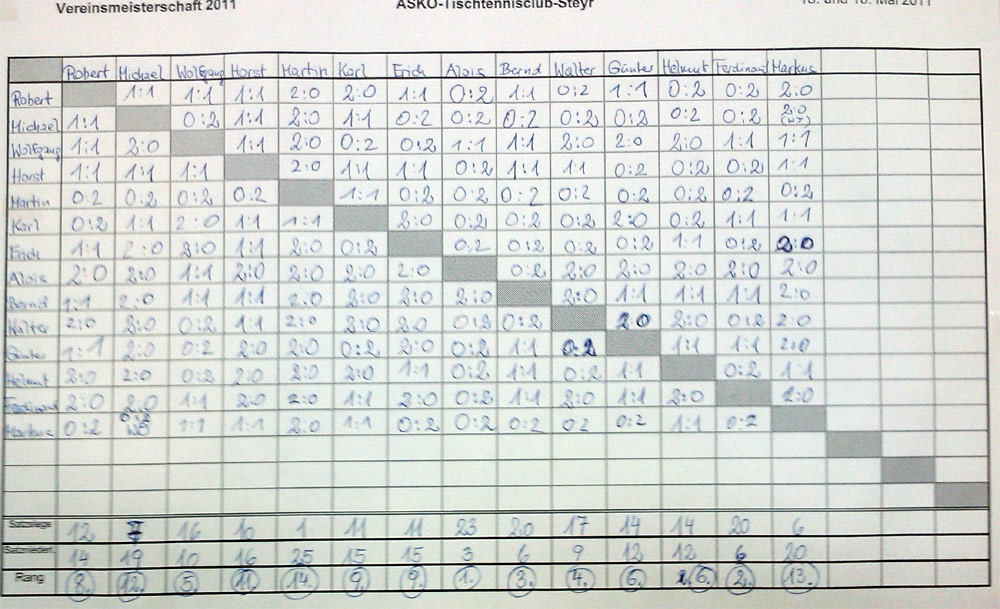 Vereinsmeisterschaft 2011 ASKÖ-Tischtennisclub-Steyr
Robert Michael Wolfgang Horst Martin Karl Erich Alois Bernd Walter Günter Helmut Ferdinand Markus
Robert 1:1 1:1 1:1 2:0 2:0 1:1 0:2 1:1 0:2 1:1 0:2 0:2 2:0
Michael 1:1 0:2 1:1 2:0 1:1 0:2 0:2 0:2 0:2 0:2 0:2 0:2 2:0
Wolfgang 1:1 2:0 1:1 2:0 0:2 0:2 1:1 1:1 2:0 2:0 2:0 1:1 1:1
Horst 1:1 1:1 1:1 2:0 1:1 1:1 0:2 1:1 1:1 0:2 0:2 0:2 1:1
Martin 0:2 0:2 0:2 0:2 1:1 0:2 0:2 0:2 0:2 0:2 0:2 0:2 0:2
Karl 0:2 1:1 2:0 1:1 1:1 2:0 0:2 0:2 0:2 2:0 0:2 1:1 1:1
Erich 1:1 2:0 2:0 1:1 2:0 0:2 0:2 0:2 0:2 0:2 1:1 0:2 2:0
Alois 2:0 2:0 1:1 2:0 2:0 2:0 2:0 0:2 2:0 2:0 2:0 2:0 2:0
Bernd 1:1 2:0 1:1 1:1 2:0 2:0 2:0 2:0 2:0 1:1 1:1 1:1 2:0
Walter 2:0 2:0 0:2 1:1 2:0 2:0 2:0 0:2 0:2 2:0 2:0 0:2 2:0
Günter 1:1 2:0 0:2 2:0 2:0 0:2 2:0 0:2 1:1 0:2 1:1 1:1 2:0
Helmut 2:0 2:0 0:2 2:0 2:0 2:0 1:1 0:2 1:1 0:2 1:1 0:2 1:1
Ferdinand 2:0 2:0 1:1 2:0 2:0 1:1 2:0 0:2 1:1 2:0 1:1 2:0 2:0
Markus 0:2 0:2 1:1 1:1 2:0 1:1 0:2 0:2 0:2 0:2 0:2 1:1 0:2
Satzsiege 12 7 16 10 1 11 11 23 20 17 14 14 20 6
Satzniederl. 14 19 10 16 25 15 15 3 6 9 12 12 6 20
Rang 8. 12. 5. 11. 14. 9. 9. 1. 3. 4. 6. 6. 2. 13.